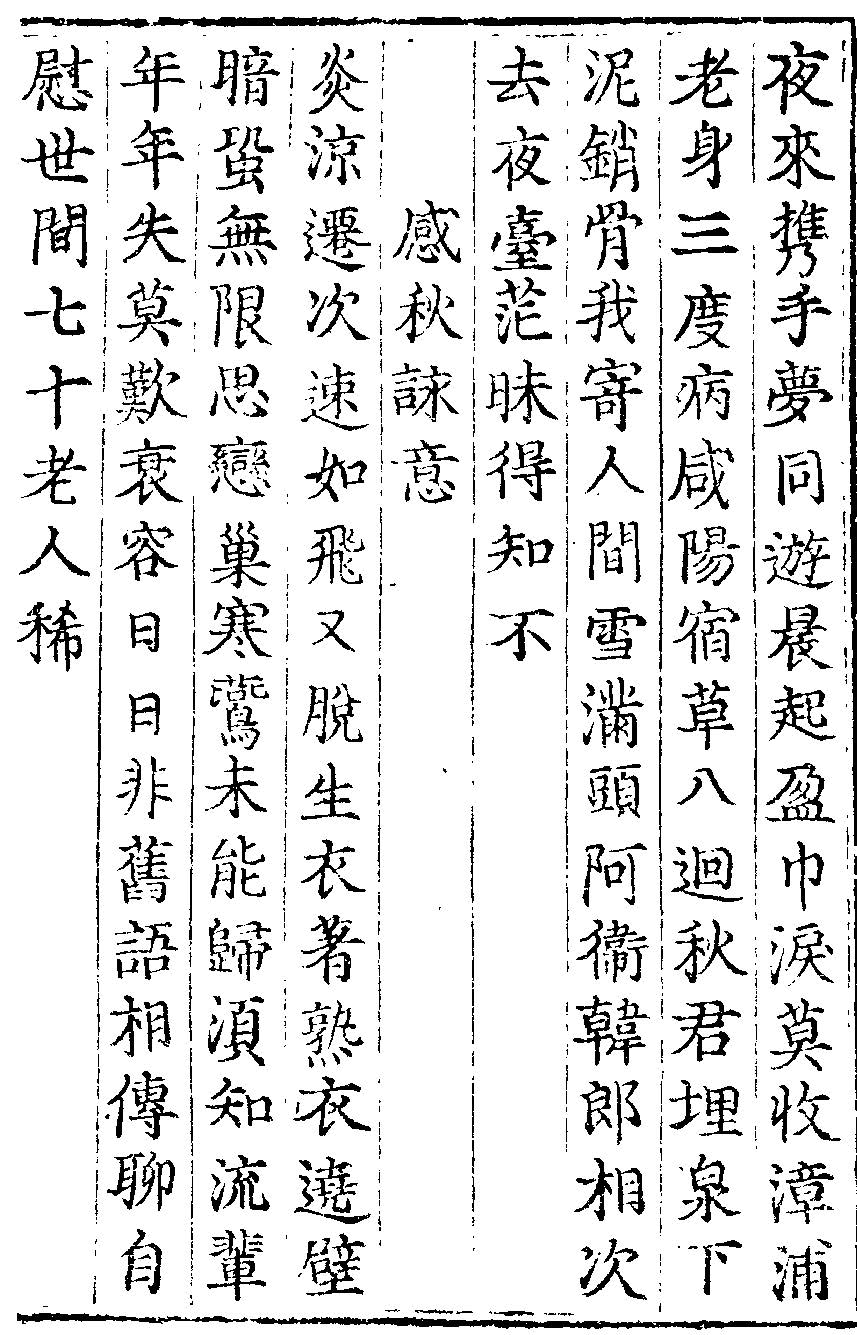 夜來携手夢同遊晨起盈巾淚莫收漳浦
老身三度病咸陽宿草八迴秋君埋泉下
泥銷骨我寄人間雪滿頭阿衞韓郎相次
去夜臺茫昧得知不
感秋詠意
炎涼遷次速如飛又脫生衣著熟衣遶壁
暗蛩無限思戀巢寒鷰未能歸須知流輩
年年失莫歎衰容日日非舊語相傳聊自
慰世間七十老人稀